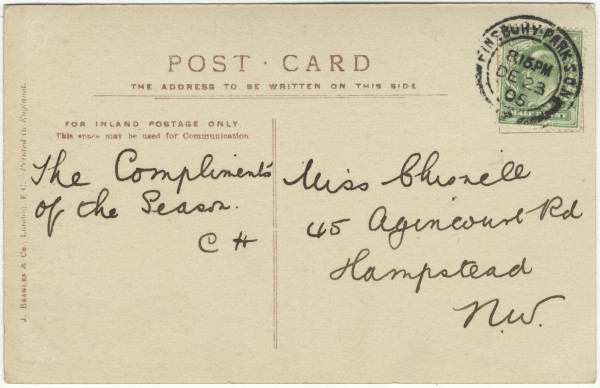 POST · CARD
THE ADDRESS TO BE WRITTEN ON THIS SIDE
FINSBURY PARK
8.15PM
DE 23
05
FOR INLAND POSTAGE ONLY.
This space may be used for Communication
The Compliments
of the Season.
C H
Miss Chisnell
45 Agincourt Rd
Hampstead
N.W.
J. BEAGLES & CO., LONDON, E.C. Printed in England.